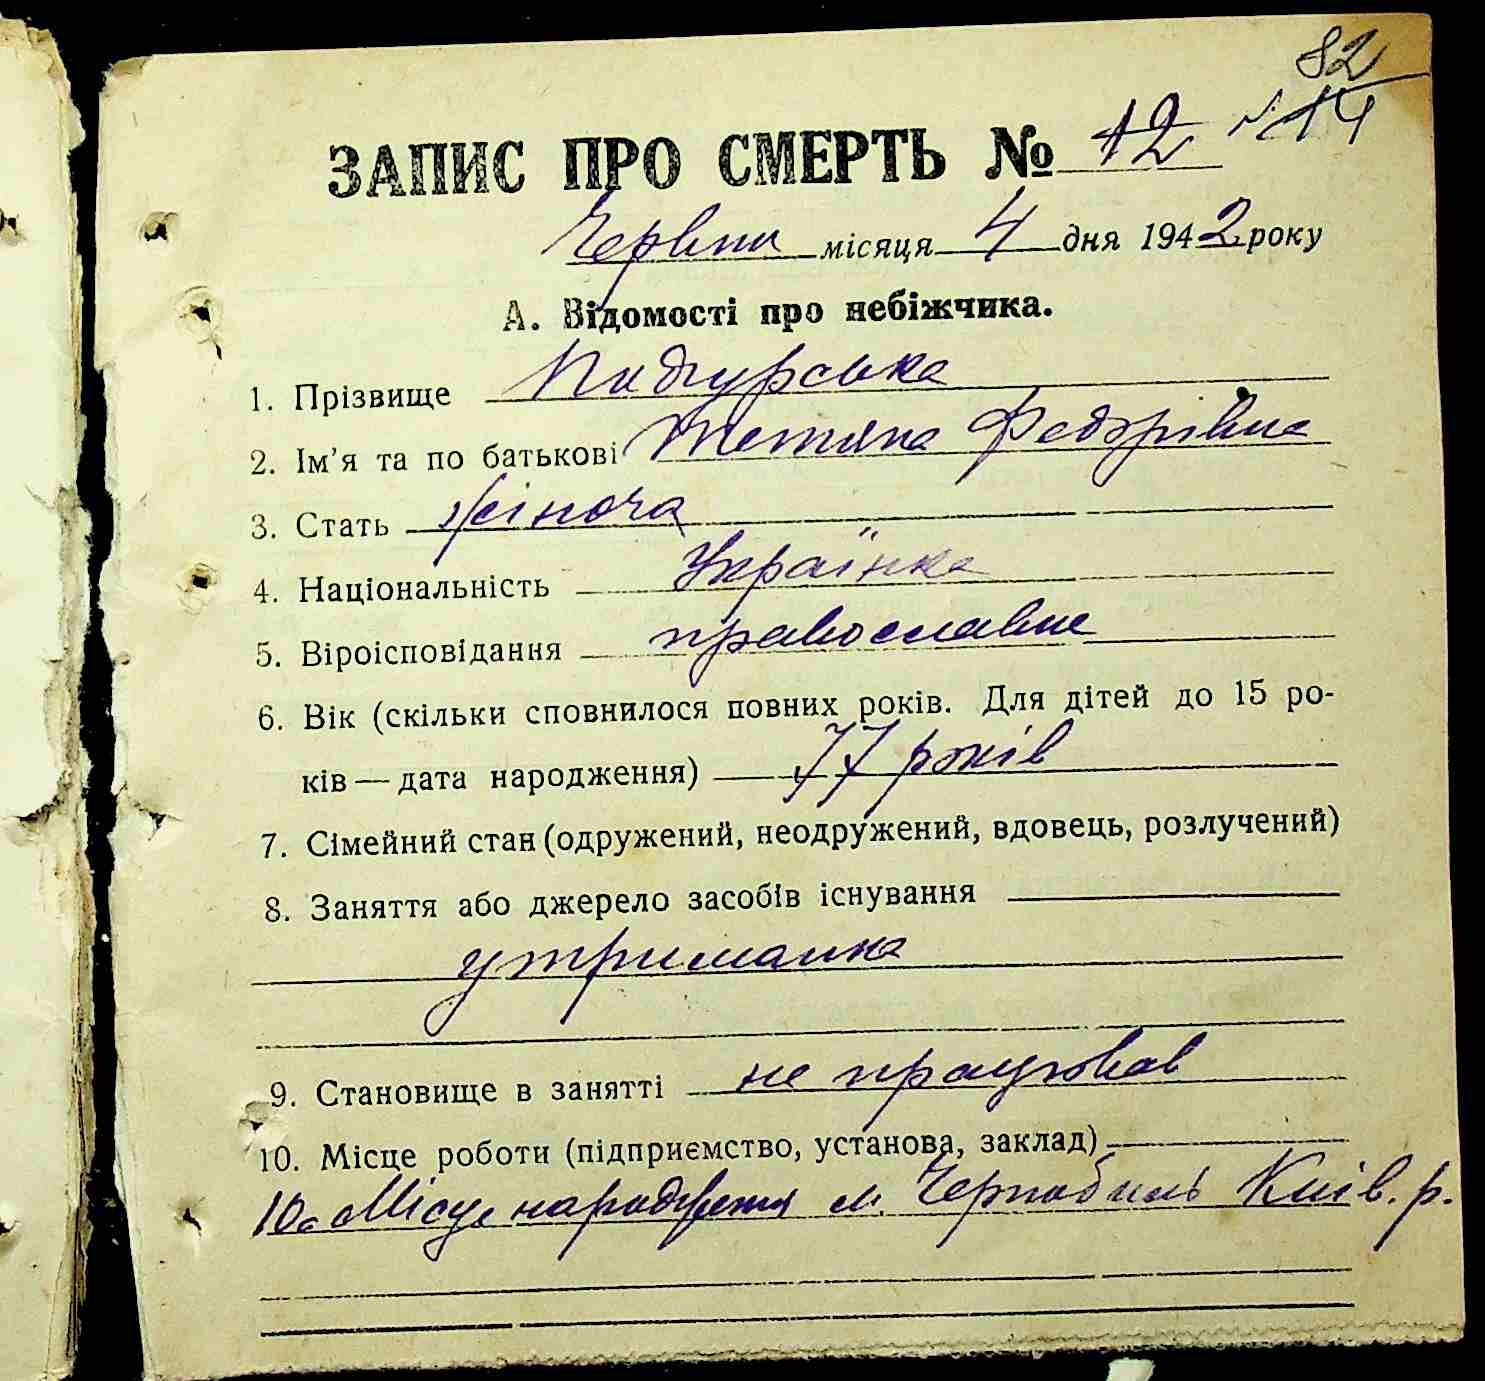 82
ЗАПИС ПРО СМЕРТЬ № 12 14
Червня місяця 4 дня 1942 року
А. Відомості про небіжчика.
1. Прізвище Підгурська
2. Ім'я та по батькові Тетяна Федорівна
3. Стать жіноча
4. Національність Українка
5. Віроісповідання православне
6. Вік (скільки сповнилося повних років. Для дітей до 15 ро-
ків — дата народження) 77 років
7. Сімейний стан (одружений, неодружений, вдовець, розлучений)
8. Заняття або джерело засобів існування
утриманка
9. Становище в занятті не працював
10. Місце роботи (підприємство, установа, заклад)
10а Місце народження м. Чернобиль Київ. р.